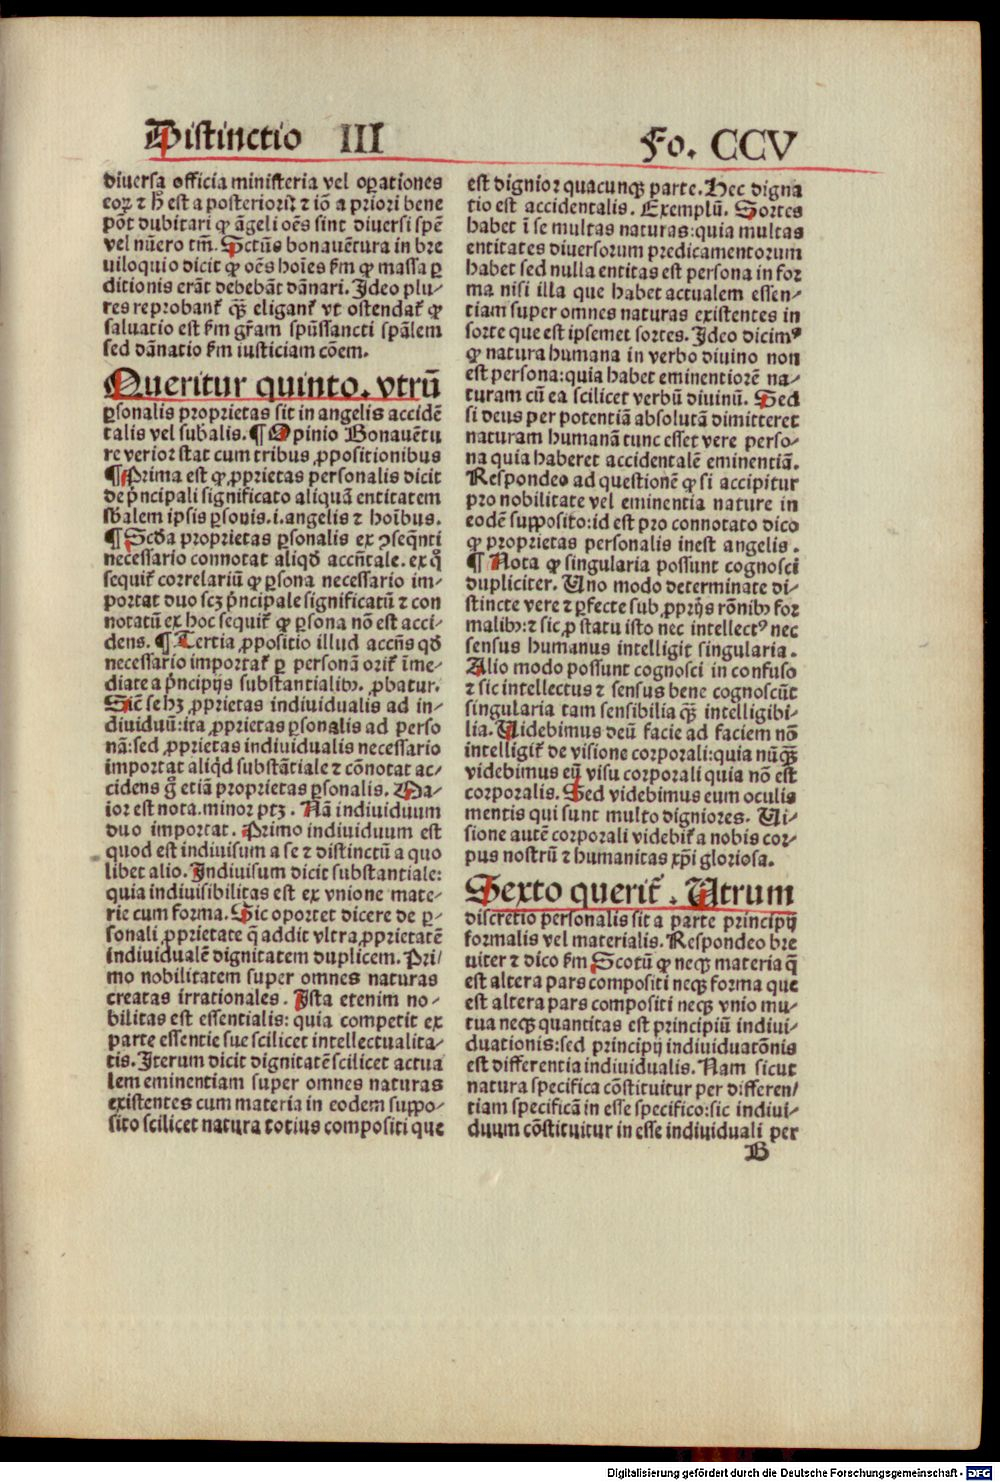 Distinctio III Fo. CCV
diuersa officia ministeria vel oꝑationes
eoꝝ ⁊ hͦ est a posterioriꝰ ⁊ iō a priori bene
pōt dubitari ꝙ āgeli oēs sint diuersi spē
vel nūero tm̄. Sctūs bonauētura in bre
uiloquio dicit ꝙ oēs hoīes ẜm ꝙ massa ꝑ
ditionis erāt debebāt dānari. Ideo plu⸗
res reprobant᷑ qꝫ̄ eligant᷑ vt ostendat᷑ ꝙ
saluatio est ẜm gr̄am spūssancti spālem
sed dānatio ẜm iusticiam cōem.
Queritur quinto. vtrū
ꝑsonalis proprietas sit in angelis accidē
talis vel subalis. ¶ Opinio Bonauētu
re verior stat cum tribus ꝓpositionibus
¶ Prima est ꝙ ꝓprietas personalis dicit
de pͥncipali significato aliquā entitatem
sb̄alem ipsis ꝑsonis.i.angelis ⁊ hoībus.
¶ Scḋa proprietas ꝑsonalis ex ꝯseqn̄ti
necessario connotat aliqḋ accn̄tale. ex qͦ
sequit᷑ correlariū ꝙ ꝑsona necessario im⸗
portat duo scꝫ pͥncipale significatū ⁊ con
notatū ex hoc sequit᷑ ꝙ ꝑsona nō est acci⸗
dens. ¶ Tertia ꝓpositio illud accn̄s qḋ
necessario importat᷑ ꝑ personā orit᷑ īme⸗
diate a pͥncipijs substantialibꝫ. ꝓbatur.
Sic̄ se hꝫ ꝓprietas indiuidualis ad in⸗
diuiduū:ita ꝓprietas ꝑsonalis ad perso
nā:sed ꝓprietas indiuidualis necessario
importat aliqḋ substātiale ⁊ cōnotat ac⸗
cidens gͦ etiā proprietas ꝑsonalis. Ma⸗
ior est nota.minor ptꝫ. Nā indiuiduum
duo importat. Primo indiuiduum est
quod est indiuisum a se ⁊ distinctū a quo
libet alio. Indiuisum dicit substantiale:
quia indiuisibilitas est ex vnione mate⸗
rie cum forma. Sic oportet dicere de ꝑ⸗
sonali ꝓprietate q̄ addit vltra ꝓprietatē
indiuidualē dignitatem duplicem. Pri⸗
mo nobilitatem super omnes naturas
creatas irrationales. Ista etenim no⸗
bilitas est essentialis: quia competit ex
parte essentie sue scilicet intellectualita⸗
tis. Iterum dicit dignitatē scilicet actua
lem eminentiam super omnes naturas
existentes cum materia in eodem suppo⸗
sito scilicet natura totius compositi que
est dignior quacunqꝫ parte. Hec digna
tio est accidentalis. Exemplū. Sortes
habet ī se multas naturas:quia multas
entitates diuersorum predicamentorum
habet sed nulla entitas est persona in for
ma nisi illa que habet actualem essen⸗
tiam super omnes naturas existentes in
sorte que est ipsemet sortes. Ideo dicimꝰ
ꝙ natura humana in verbo diuino non
est persona:quia habet eminentiorē na⸗
turam cū ea scilicet verbū diuinū. Sed
si deus per potentiā absolutā dimitteret
naturam humanā tunc esset vere perso⸗
na quia haberet accidentalē eminentiā.
Respondeo ad questionē ꝙ si accipitur
pro nobilitate vel eminentia nature in
eodē supposito:id est pro connotato dico
ꝙ proprietas personalis inest angelis.
¶ Nota ꝙ singularia possunt cognosci
dupliciter. Uno modo determinate di⸗
stincte vere ⁊ ꝑfecte sub ꝓprijs rōnibꝫ for
malibꝫ:⁊ sic ꝓ statu isto nec intellectꝰ nec
sensus humanus intelligit singularia.
Alio modo possunt cognosci in confuso
⁊ sic intellectus ⁊ sensus bene cognoscūt
singularia tam sensibilia qꝫ̄ intelligibi⸗
lia. Uidebimus deū facie ad faciem nō
intelligit᷑ de visione corporali:quia nūqꝫ̄
videbimus eū visu corporali quia nō est
corporalis. Sed videbimus eum oculis
mentis qui sunt multo digniores. Ui⸗
sione autē corporali videbit᷑ a nobis cor⸗
pus nostrū ⁊ humanitas xp̄i gloriosa.
Sexto querit᷑. Utrum
discretio personalis sit a parte principij
formalis vel materialis. Respondeo bre
uiter ⁊ dico ẜm Scotū ꝙ neqꝫ materia q̄
est altera pars compositi neqꝫ forma que
est altera pars compositi neqꝫ vnio mu⸗
tua neqꝫ quantitas est principiū indiui⸗
duationis:sed principij indiuiduatōnis
est differentia indiuidualis. Nam sicut
natura specifica cōstituitur per differen⸗
tiam specificā in esse specifico:sic indiui⸗
duum cōstituitur in esse indiuiduali per
B
Digitalisierung gefördert durch die Deutsche Forschungsgemeinschaft - DFG